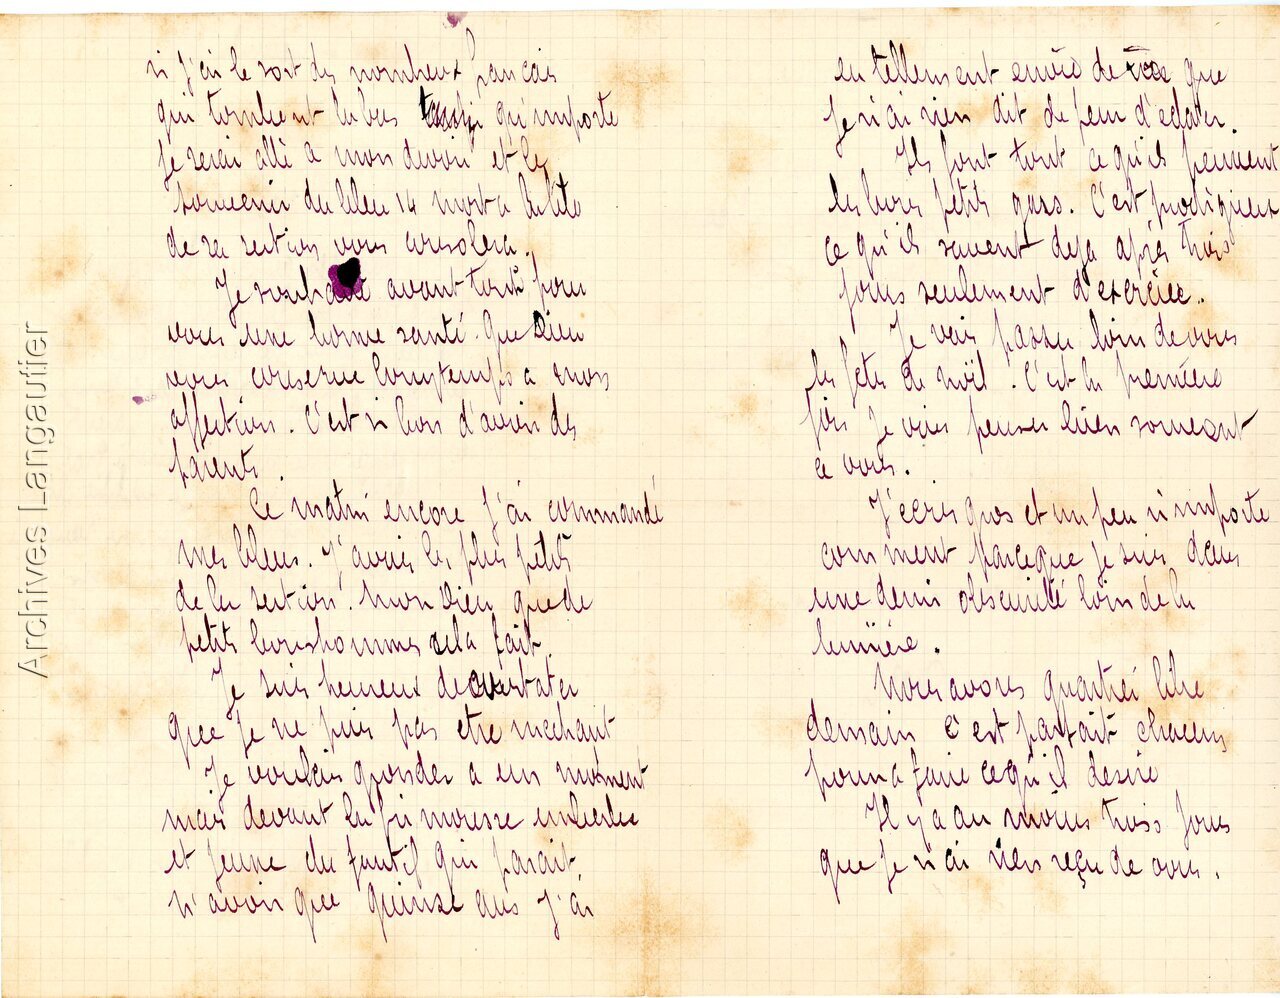 si j'ai le sort des nombreux francais
qui tombent la bas qu'importe
je serai allé a mon devoir et le
souvenir du bleu 14 mort a
de sa section vous consolera.
Je souhaite avant tout pour
vous une bonne santé. Que Dieu
vous conserve longtemps a mon
affection. C'est si bon d'avoir des
parents.
Ce matin encore j'ai commandé
mes bleus. J'avais les plus petits
de la section. Mon Dieu que de
petits bonshommes cela fait.
Je suis heureux de constater
que je ne puis pas etre mechant
Je voulais gronder a un moment
mais devant la frimousse imberbe
et jeune du fautif qui parait
n'avoir que quinze ans j'ai
eu tellement envie de rire que
je n'ai rien dit de peur d'eclater.
Ils font tout ce qu'ils peuvent
les bons petits gars. C'est prodigieux
ce qu'ils savent deja après trois
jours seulement d'exercice.
Je vais passer loin de vous
les fetes de noël. C'est la première
fois je vais penser bien souvent
a vous.
J'ecris gros et un peu n'importe
comment parceque je suis dans
une demi obscurité loin de la
lumière.
Nous avons quartier libre
demain c'est parfait chacun
pourra faire ce qu'il desire
Il y a au moins trois jours
que je n'ai rien reçu de vous.
Archives Langautier